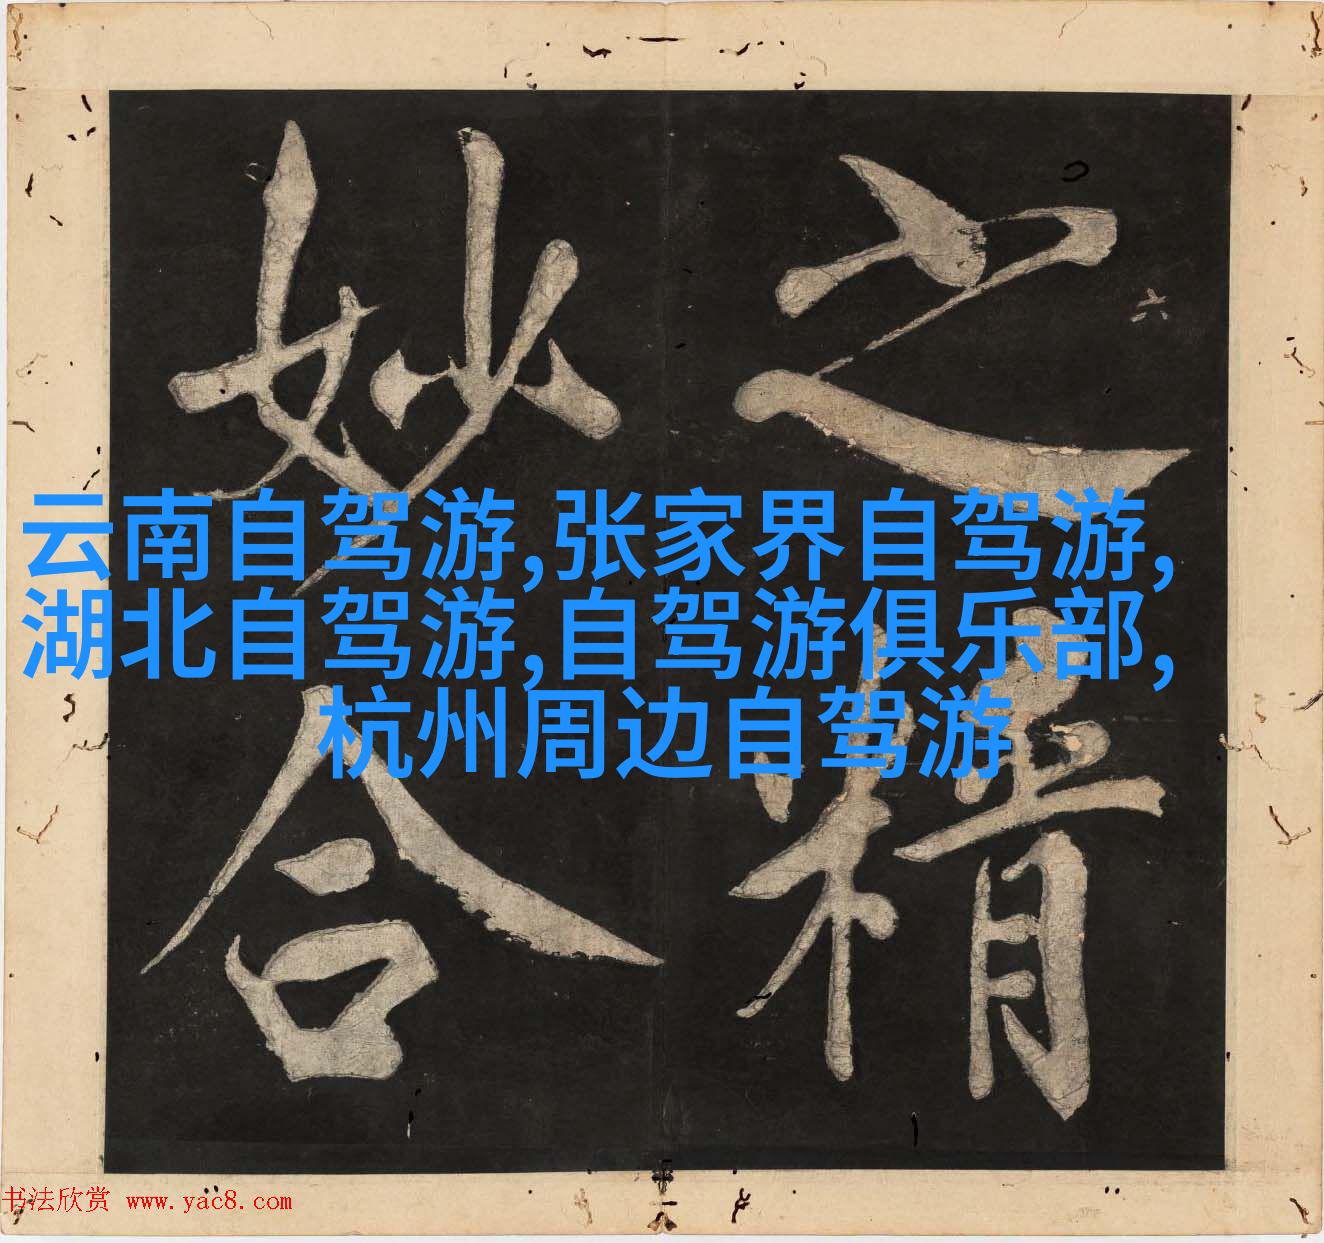 云南自驾游,张家界自驾游,
湖北自驾游,自驾游俱乐部,
杭州周边自驾游
之精
妙合
六
书法欣赏 www.yac8.com